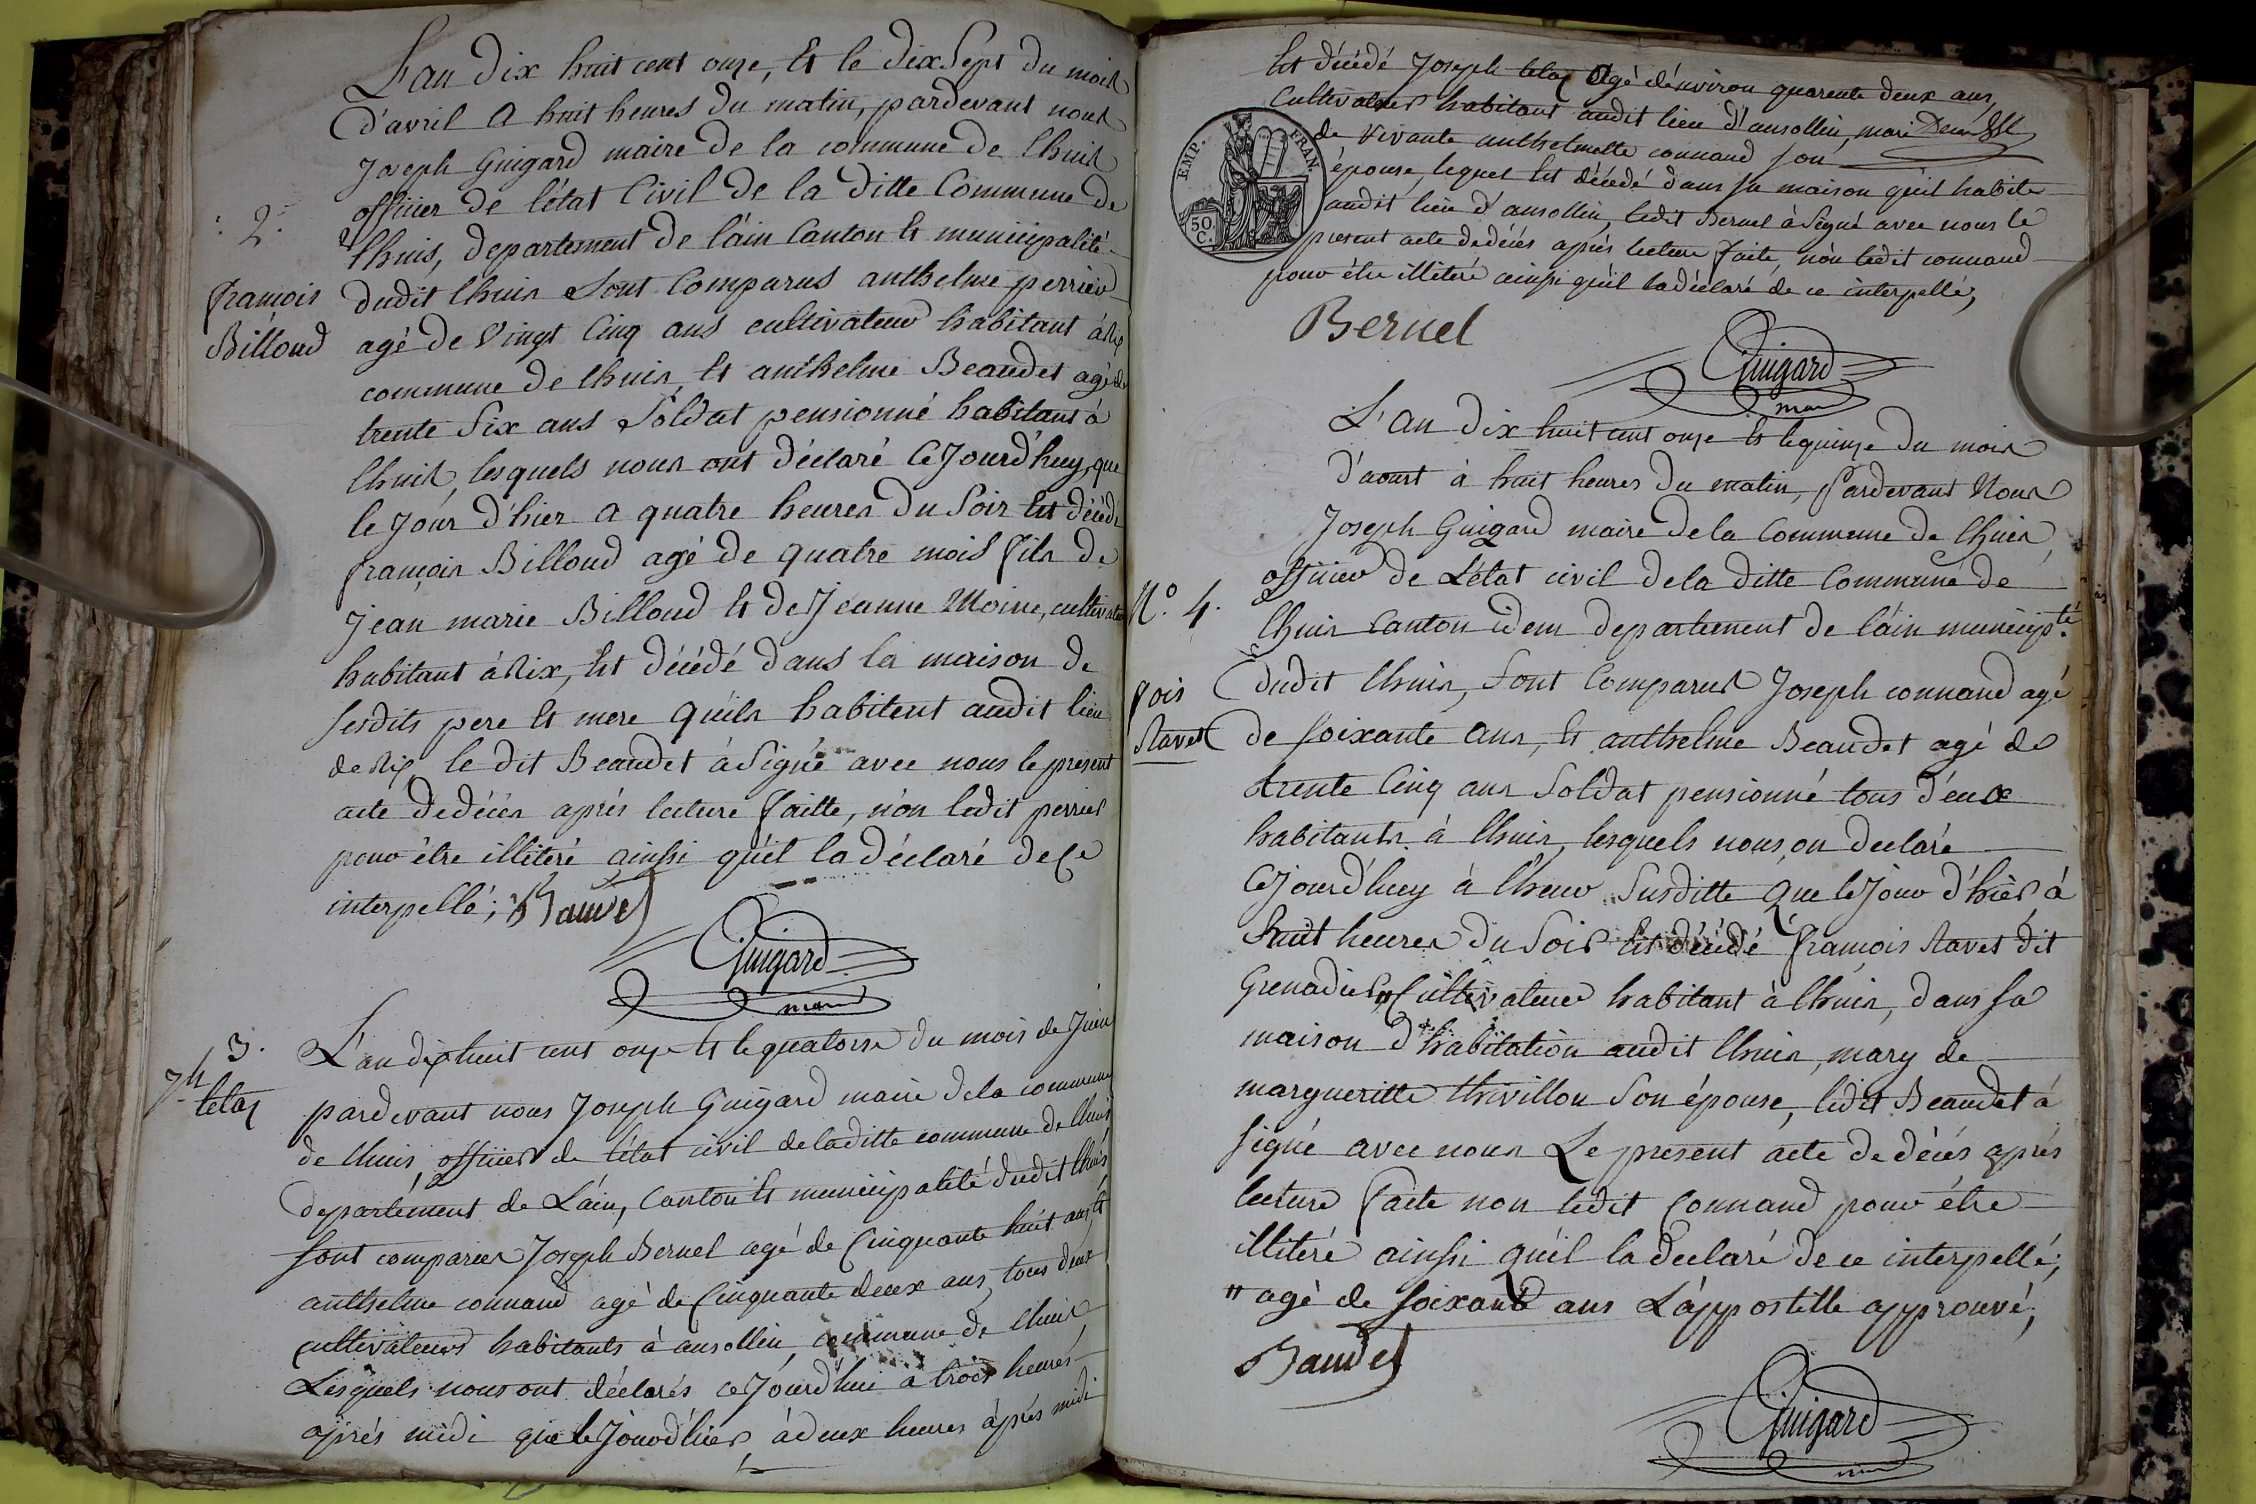 L'an dix huit cent onze, Et le dix Sept du mois
d'avril a huit heures du matin, pardevant nous
Joseph Guigard maire de la commune de lhuis
officier de l'état Civil de la ditte Commune de
: 2 :
lhuis, departement de l'áin Canton Et municipalité
françois
Billoud
dudit lhuis Sont Comparus anthelme perrier
agé de Vingt Cinq ans cultivateur habitant á Rix
commune de lhuis, Et anthelme Beaudet agé de
trente Six ans Soldat pensionné habitant à
lhuis, lesquels nous ont déclaré Ce Jourd'huy, que
le Jour d'hier a quatre heures du Soir Est décédé
françois Billoud agé de quatre mois fils de
Jean marie Billoud Et de Jeanne Moine, cultivateur
habitant à Rix, Est décédé dans la maison de
Sesdits pere Et mere qu'ils habitent audit lieu
de Rix, le dit Beaudet à Signé avec nous le present
acte de décés aprés lecture faitte, nòn ledit perrier
pour être illiteré ainssi qu'il la déclaré de Ce
interpellé; Baudet
Guigard
maire
3.
Jh
télaz
L'an dix huit cent onze Et le quatorse du mois de Juin
pardevant nous Joseph Guigard maire de la commune
de lhuis, officier de l'état civil de laditte commune de lhuis
departement de L'áin, Canton Et municipalité dudit lhuis
Sont comparus Joseph Bernel agé de Cinquante huit ans, Et
anthelme connand agé de Cinquante deux ans, tous deux
cultivateurs habitants à ansollin, commune de lhuis
Lesquels nous ont déclarés ce Jourd'hui a trois heures
aprés midi que le Jour d'hier, à deux heures après midi
Est décédé Joseph télaz Agé d'énviron quarente deux ans,
Cultivateur habitant audit lieu d'ansollin, mari
de Vivante anthelmette connand son
épouse, lequel Est décédé dans sa maison qu'il habite
audit lieu d'ansollin, ledit Bernel à Signé avec nous le
present acte de décés aprés lecture faite, nòn ledit connand
pour être illiteré ainssi qu'il la déclaré de ce interpellé,
EMP. FRAN.
50
C.
Bernel
Guigard
maire
L'an dix huit cent onze Et le quinze du mois
d'aoust à huit heures du matin, Pardevant Nous
Joseph Guigard maire de la Commune de lhuis,
officier de L'état civil de la ditte Commune de
N.° 4.
lhuis Canton idem departement de l'áin municipté.
fois
Ravet
dudit lhuis, Sont Comparus Joseph connand agé
de Soixante ans, Et anthelme Beaudet agé de
trente Cinq ans Soldat pensionné tous d'eux
habitants à lhuis, lesquels nous on declaré
Ce Jourd'huy à l'heur Susditte Que le Jour d'hièr à
huit heures du Soir Est décédé françois Ravet dit
Grenadier " Cultivateur habitant à lhuis, dans sa
maison d'habitation audit lhuis, mary de
margueritte thivillon Son épouse, ledit Beaudet à
signé avec nous Le present acte de décés aprés
lecture faite non ledit Connand pour être
illiteré ainssi qu'il la declaré de ce interpellé;
" agé de Soixante ans L'appostille approuvé;
Baudet
Guigard
maire